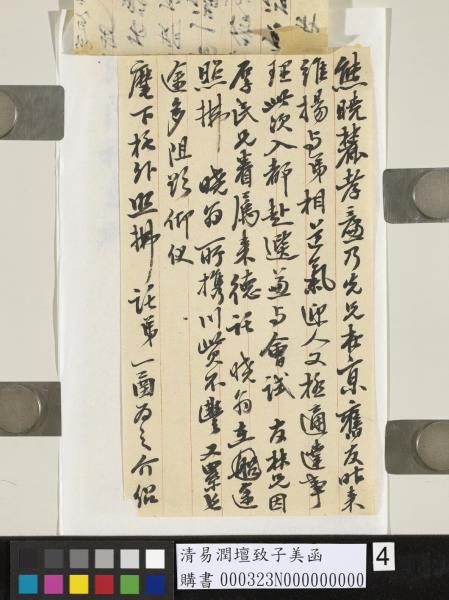 熊曉麓孝廉乃先兄在京舊友昨來
維揚与弟相氣迎人又極通達事
理此次入都赴選兼与會試 友林兄因
厚民兄眷屬來德託 曉翁在途
照拂 曉翁所攜川資不豐又
途多阻仰仗
麾下格外照拂 託弟一函為之介紹
清易潤壇致子美函
購書 000323N000000000
4